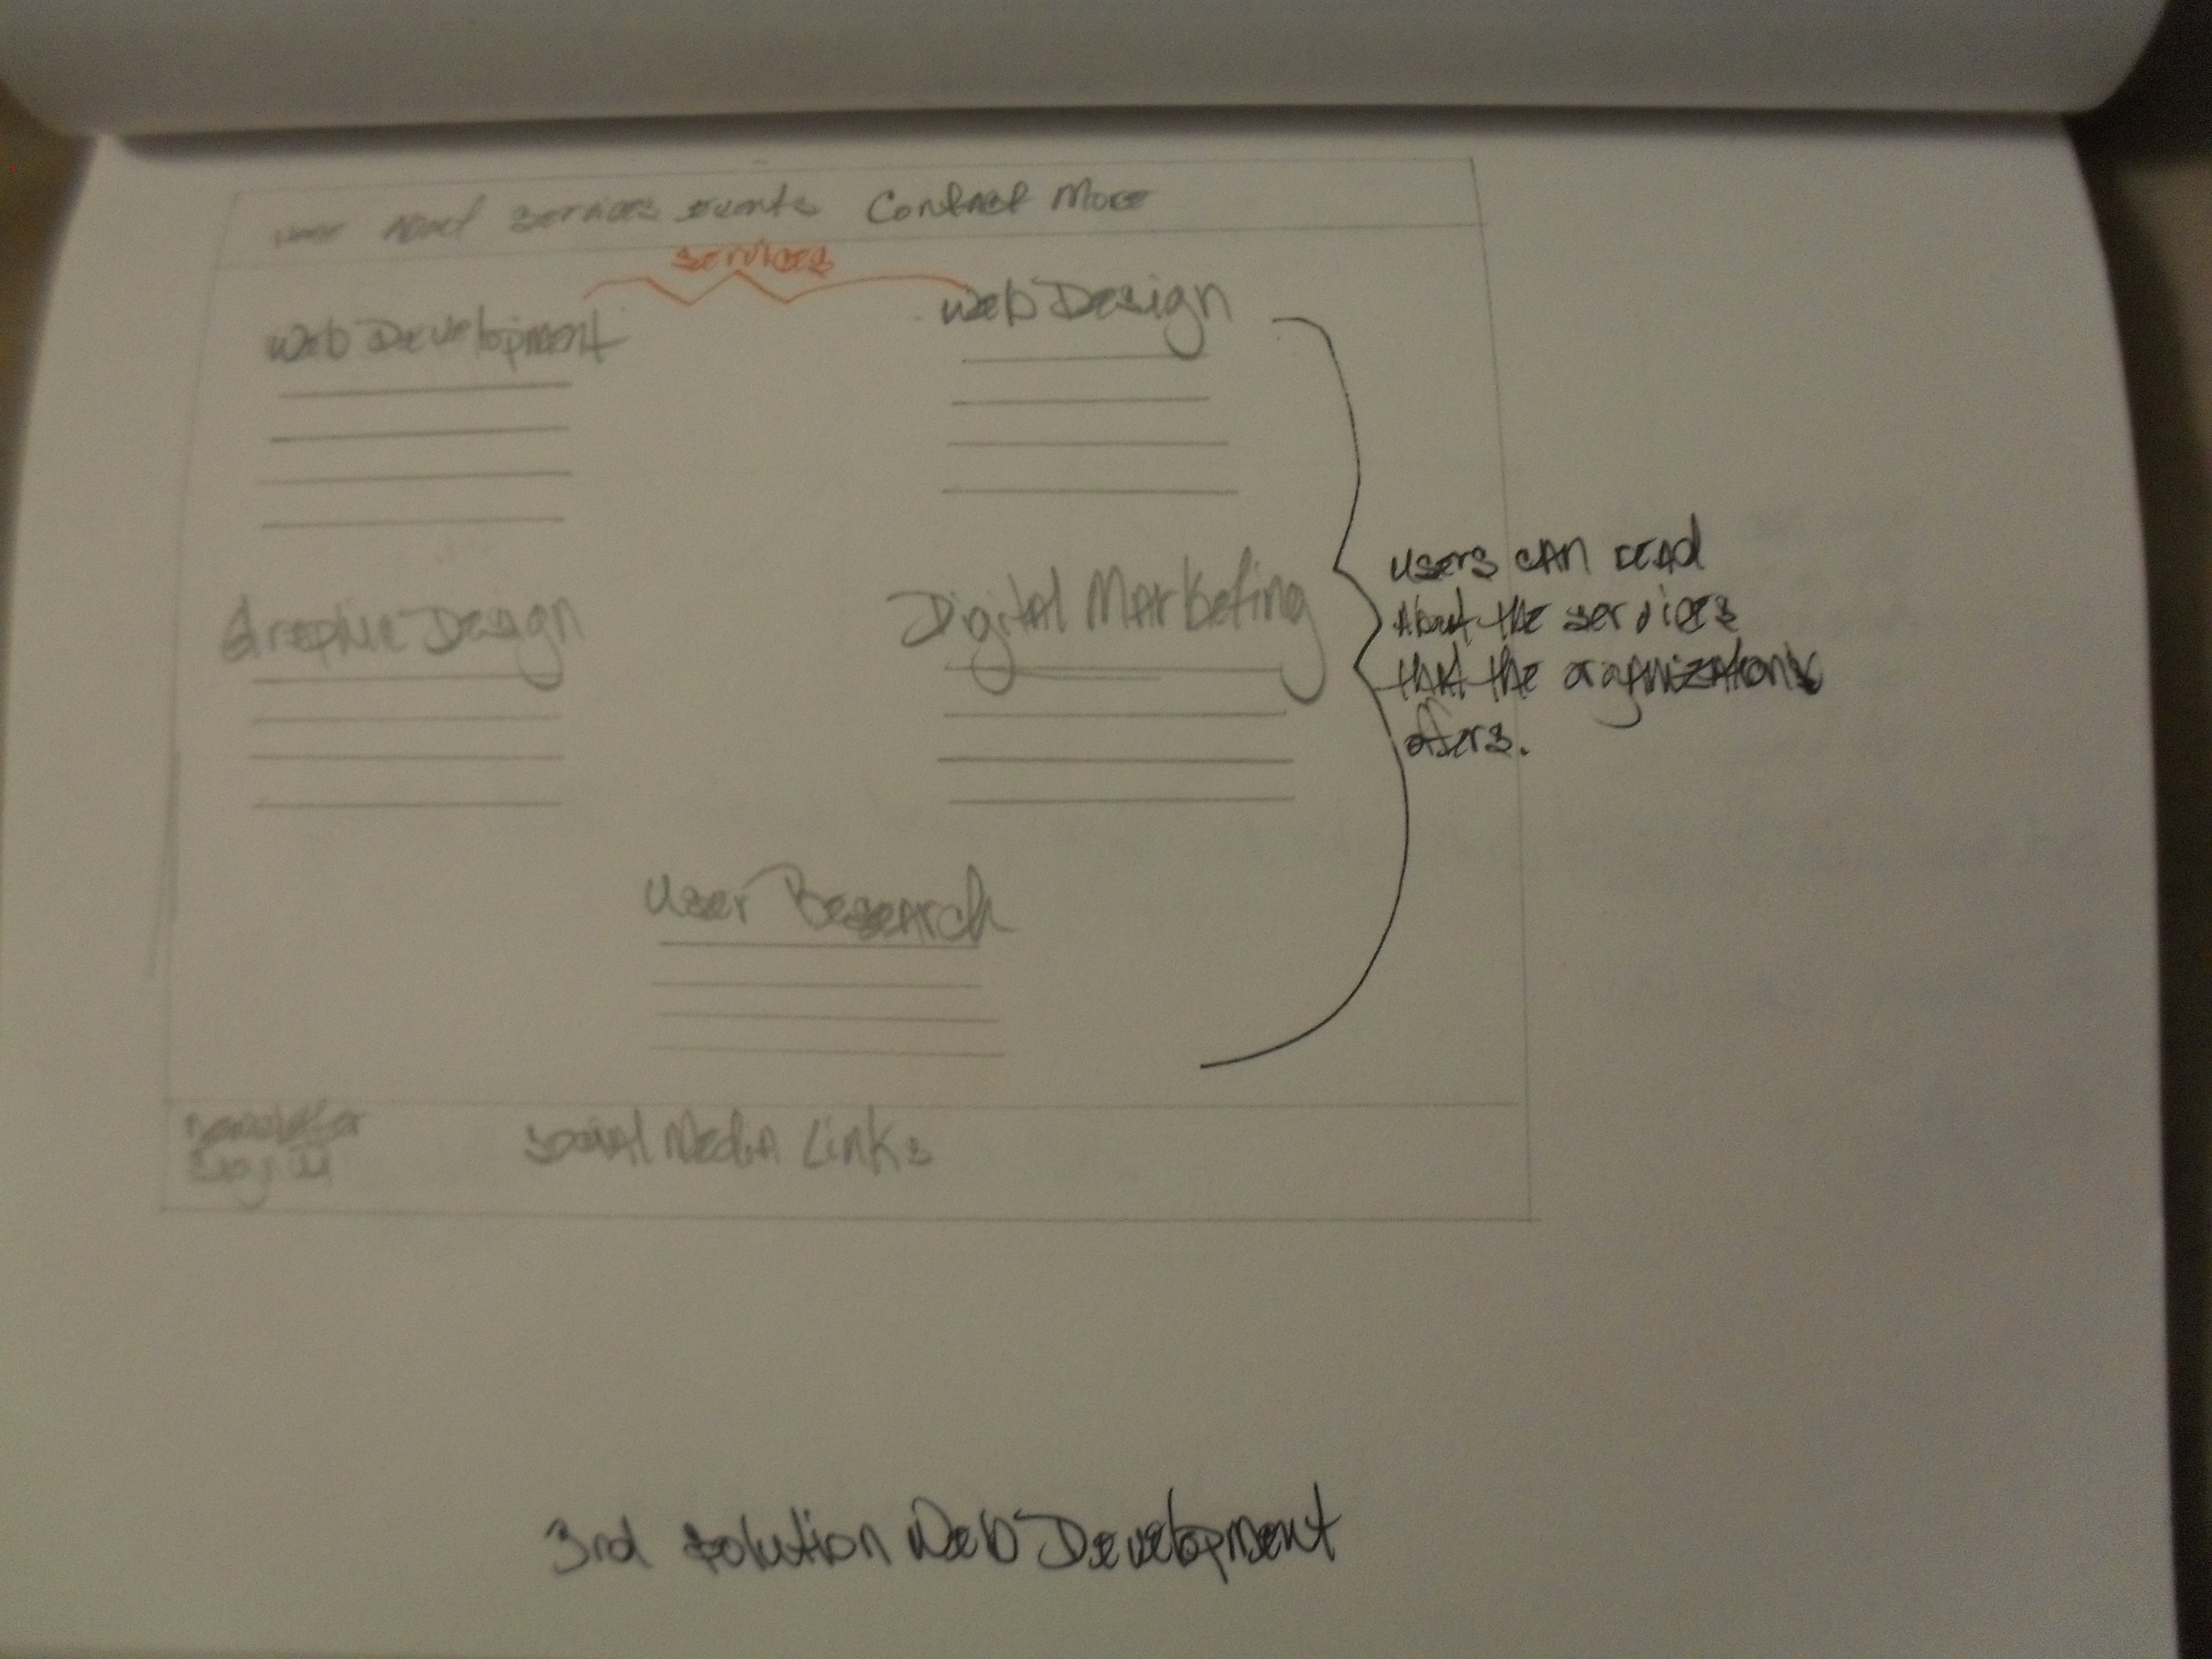 About Services Events Contact More
Services
Web Development
Web Design
Graphic Design
Digital Marketing
users can read
About the services
that the organization
offers.
User Research
Newsletter
Social Media Links
3rd solution Web Development